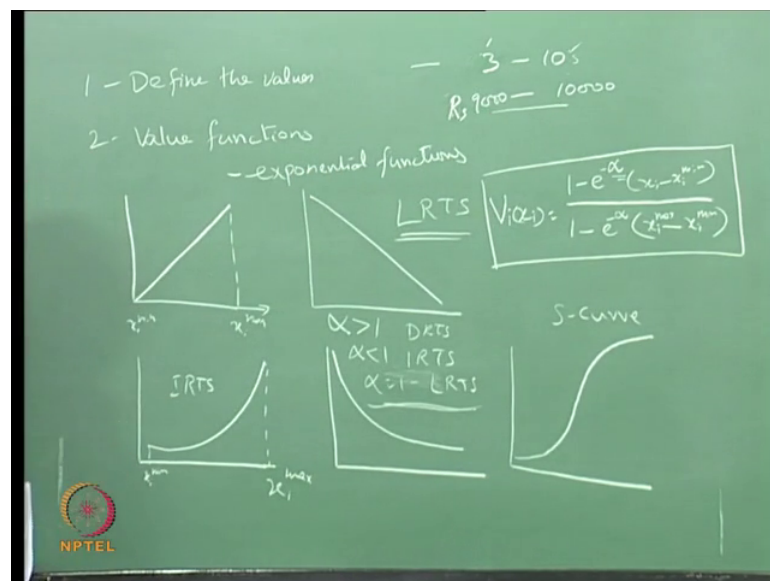 1 - Define the values — 3 - 10's
Rs 9000 — 10000
2 - Value functions
- exponential functions
LRTS
Vi(xi) = 1 - e^-α (xi - xi^min) / 1 - e^-α (xi^max - xi^min)
xi^min xi^max
α > 1 DRTS
α < 1 IRTS
α = 1 - LRTS
S-Curve
IRTS
xi^min xi^max
NPTEL